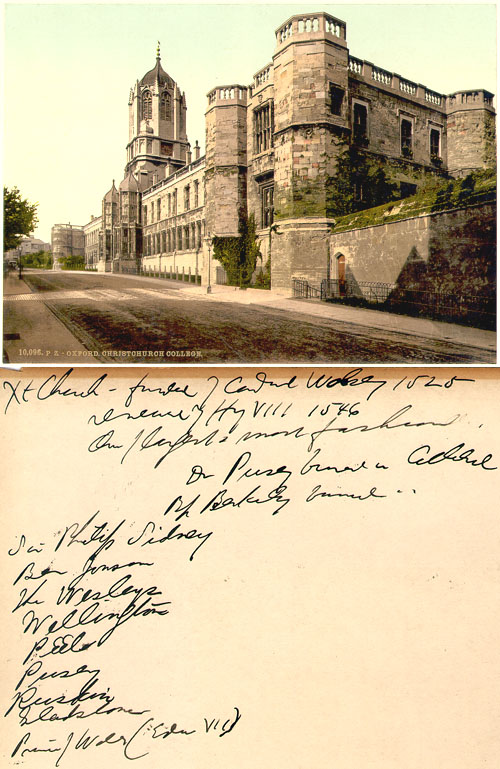 10,096. P. Z. - OXFORD. CHRISTCHURCH COLLEGE.
Xt Church - founded by Cardinal Wolsey 1525
renewed by Hy VIII 1546
One of largest & most fashion.
Dr Pusey buried in Cathedral
Bp. Berkeley buried " "
Sir Philip Sidney
Ben Jonson
The Wesleys
Wellington
Peele
Pusey
Ruskin
Gladstone
Prince of Wales (Edw VII)